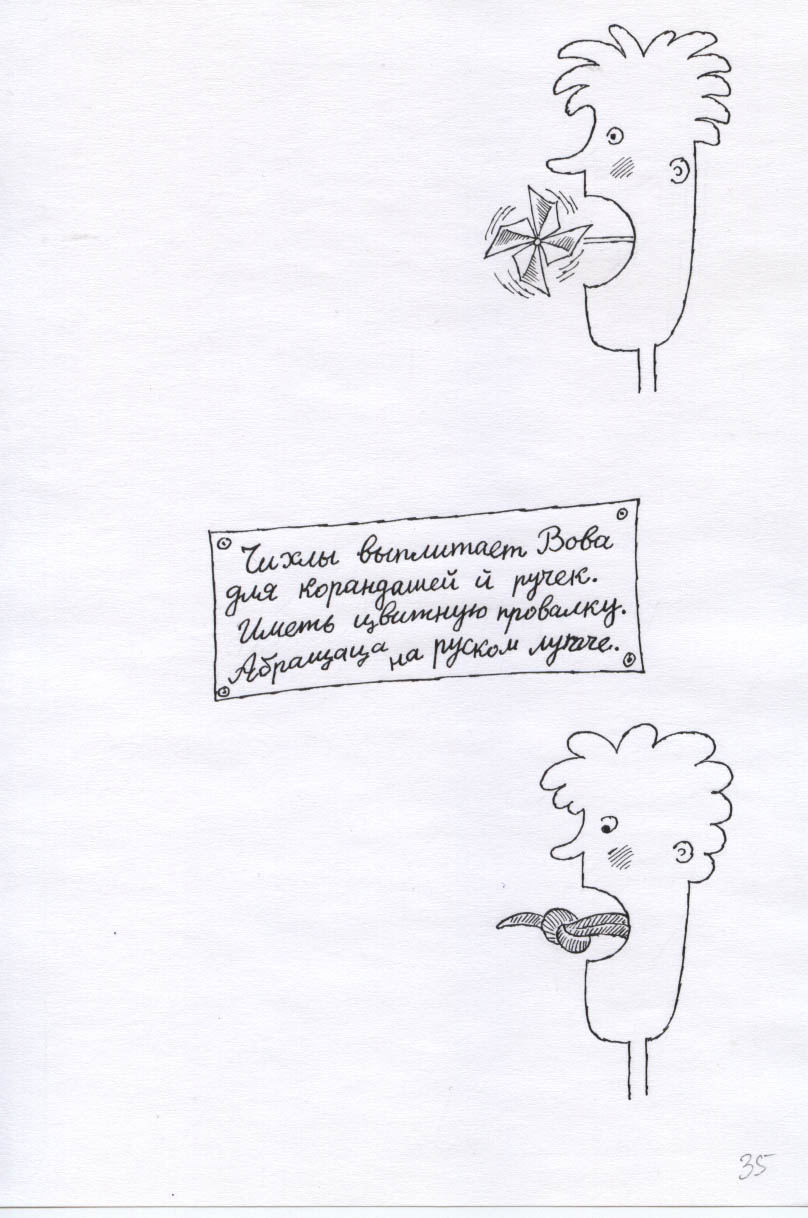 Чихлы выплитает Вова
для корандашей й ручек.
Иметь цвитную провалку.
Абращаца на руском лутче.
35